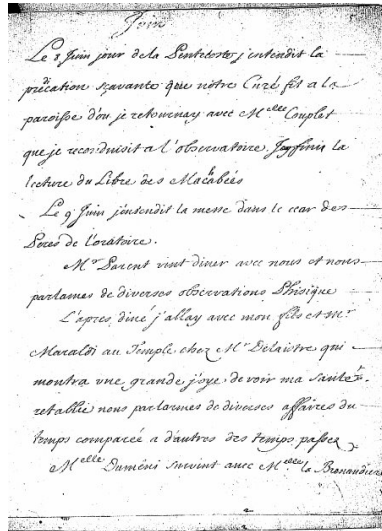 Juin
Le 8 Juin jour de la Pentecoste j'entendit la
prédication sçavante que nôtre Curé fit a la
paroisse d'ou je retournay avec Melle Couplet
que je reconduisit a l'observatoire. Jay finis la
lecture du Libre des Macabées
Le 9 Juin j'entendit la messe dans le cœur des
Peres de l'oratoire.
Mr Parent vint diner avec nous et nous
parlames de diverses observations Phisique
L'apres diné j'allay avec mon fils et Mr
Maraldi au Temple chez Mr Delaistre qui
montra une grande joye de voir ma santé
retablie nous parlames de diverses affaires du
temps comparée a d'autres des temps passez
Melle Daméni survint avec Melle la Brenandiere